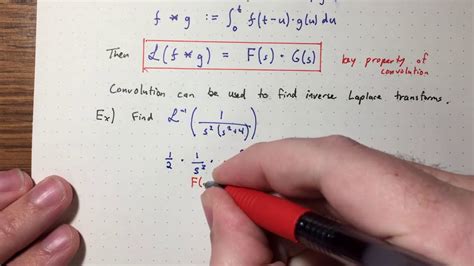 f * g := ∫₀ᵗ f(t-u)·g(u) du
Then ℒ(f * g) = F(s) · G(s) key property of
convolution
Convolution can be used to find inverse Laplace transforms.
Ex) Find ℒ⁻¹(1/(s²(s²+4)))
1/2 · 1/s² ·
F(